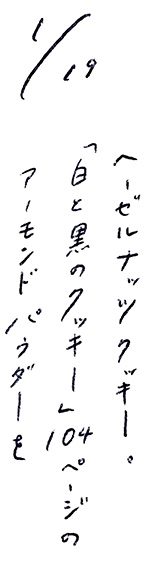 1/19
ヘーゼルナッツクッキー。
「白と黒のクッキー」104ページの
アーモンドパウダーを